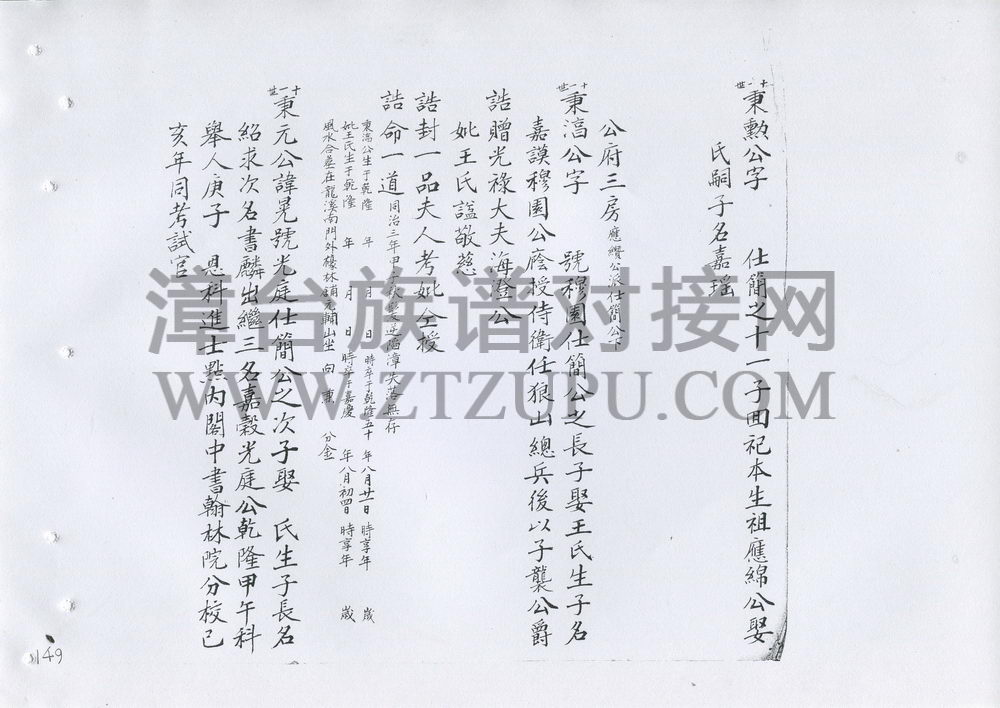 十一世
秉勲公字 仕簡之十一子回祀本生祖應綿公娶
氏嗣子名嘉瑤
公府三房應纘公派仕簡公下
十一世
秉 公字 號穆園仕簡公之長子娶王氏生子名
嘉謨穆園公廕授侍衛任狼山總兵後以子襲公爵
誥贈光祿大夫海澄公
妣王氏諡敬慈
誥封一品夫人考妣仝授
誥命一道同治三年甲 秋 逆 漳失落無存
秉 公生于乾隆 年 月 日 時卒于乾隆五十 年八月廿一日 時享年 歲
妣王氏生于乾隆 年 月 日 時卒于嘉慶 年八月初四日 時享年 歲
風水合墓在龍溪南門外 林 山坐 向 兼 分金
十一世
秉元公諱晃號光庭仕簡公之次子娶 氏生子長名
紹求次名書麟出繼三名嘉穀光庭公乾隆甲午科
舉人庚子 恩科進士點內閣中書翰林院分校己
亥年同考試官
漳台族谱对接网
WWW.ZTZUPU.COM
149